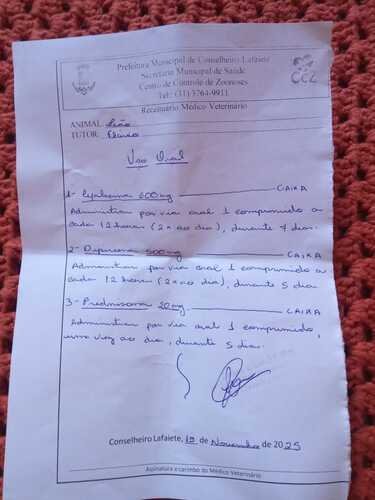 Prefeitura Municipal de Conselheiro Lafaiete
Secretaria Municipal de Saúde
Centro de Controle de Zoonoses
Tel.: (31) 3764-9911
CCZ
Receituário Médico Veterinário
ANIMAL: Leão
TUTOR:
Uso Oral
1- 600mg CAIXA
Administrar por via oral 1 comprimido a
cada 12 horas (2x ao dia), durante 7 dias.
2- Dipirona 500mg CAIXA
Administrar por via oral 1 comprimido a
cada 12 horas (2x ao dia), durante 5 dias.
3- Prednisona 20mg CAIXA
Administrar por via oral 1 comprimido,
uma vez ao dia, durante 5 dias.
Conselheiro Lafaiete, de Novembro de 2025
Assinatura e carimbo do Médico Veterinário